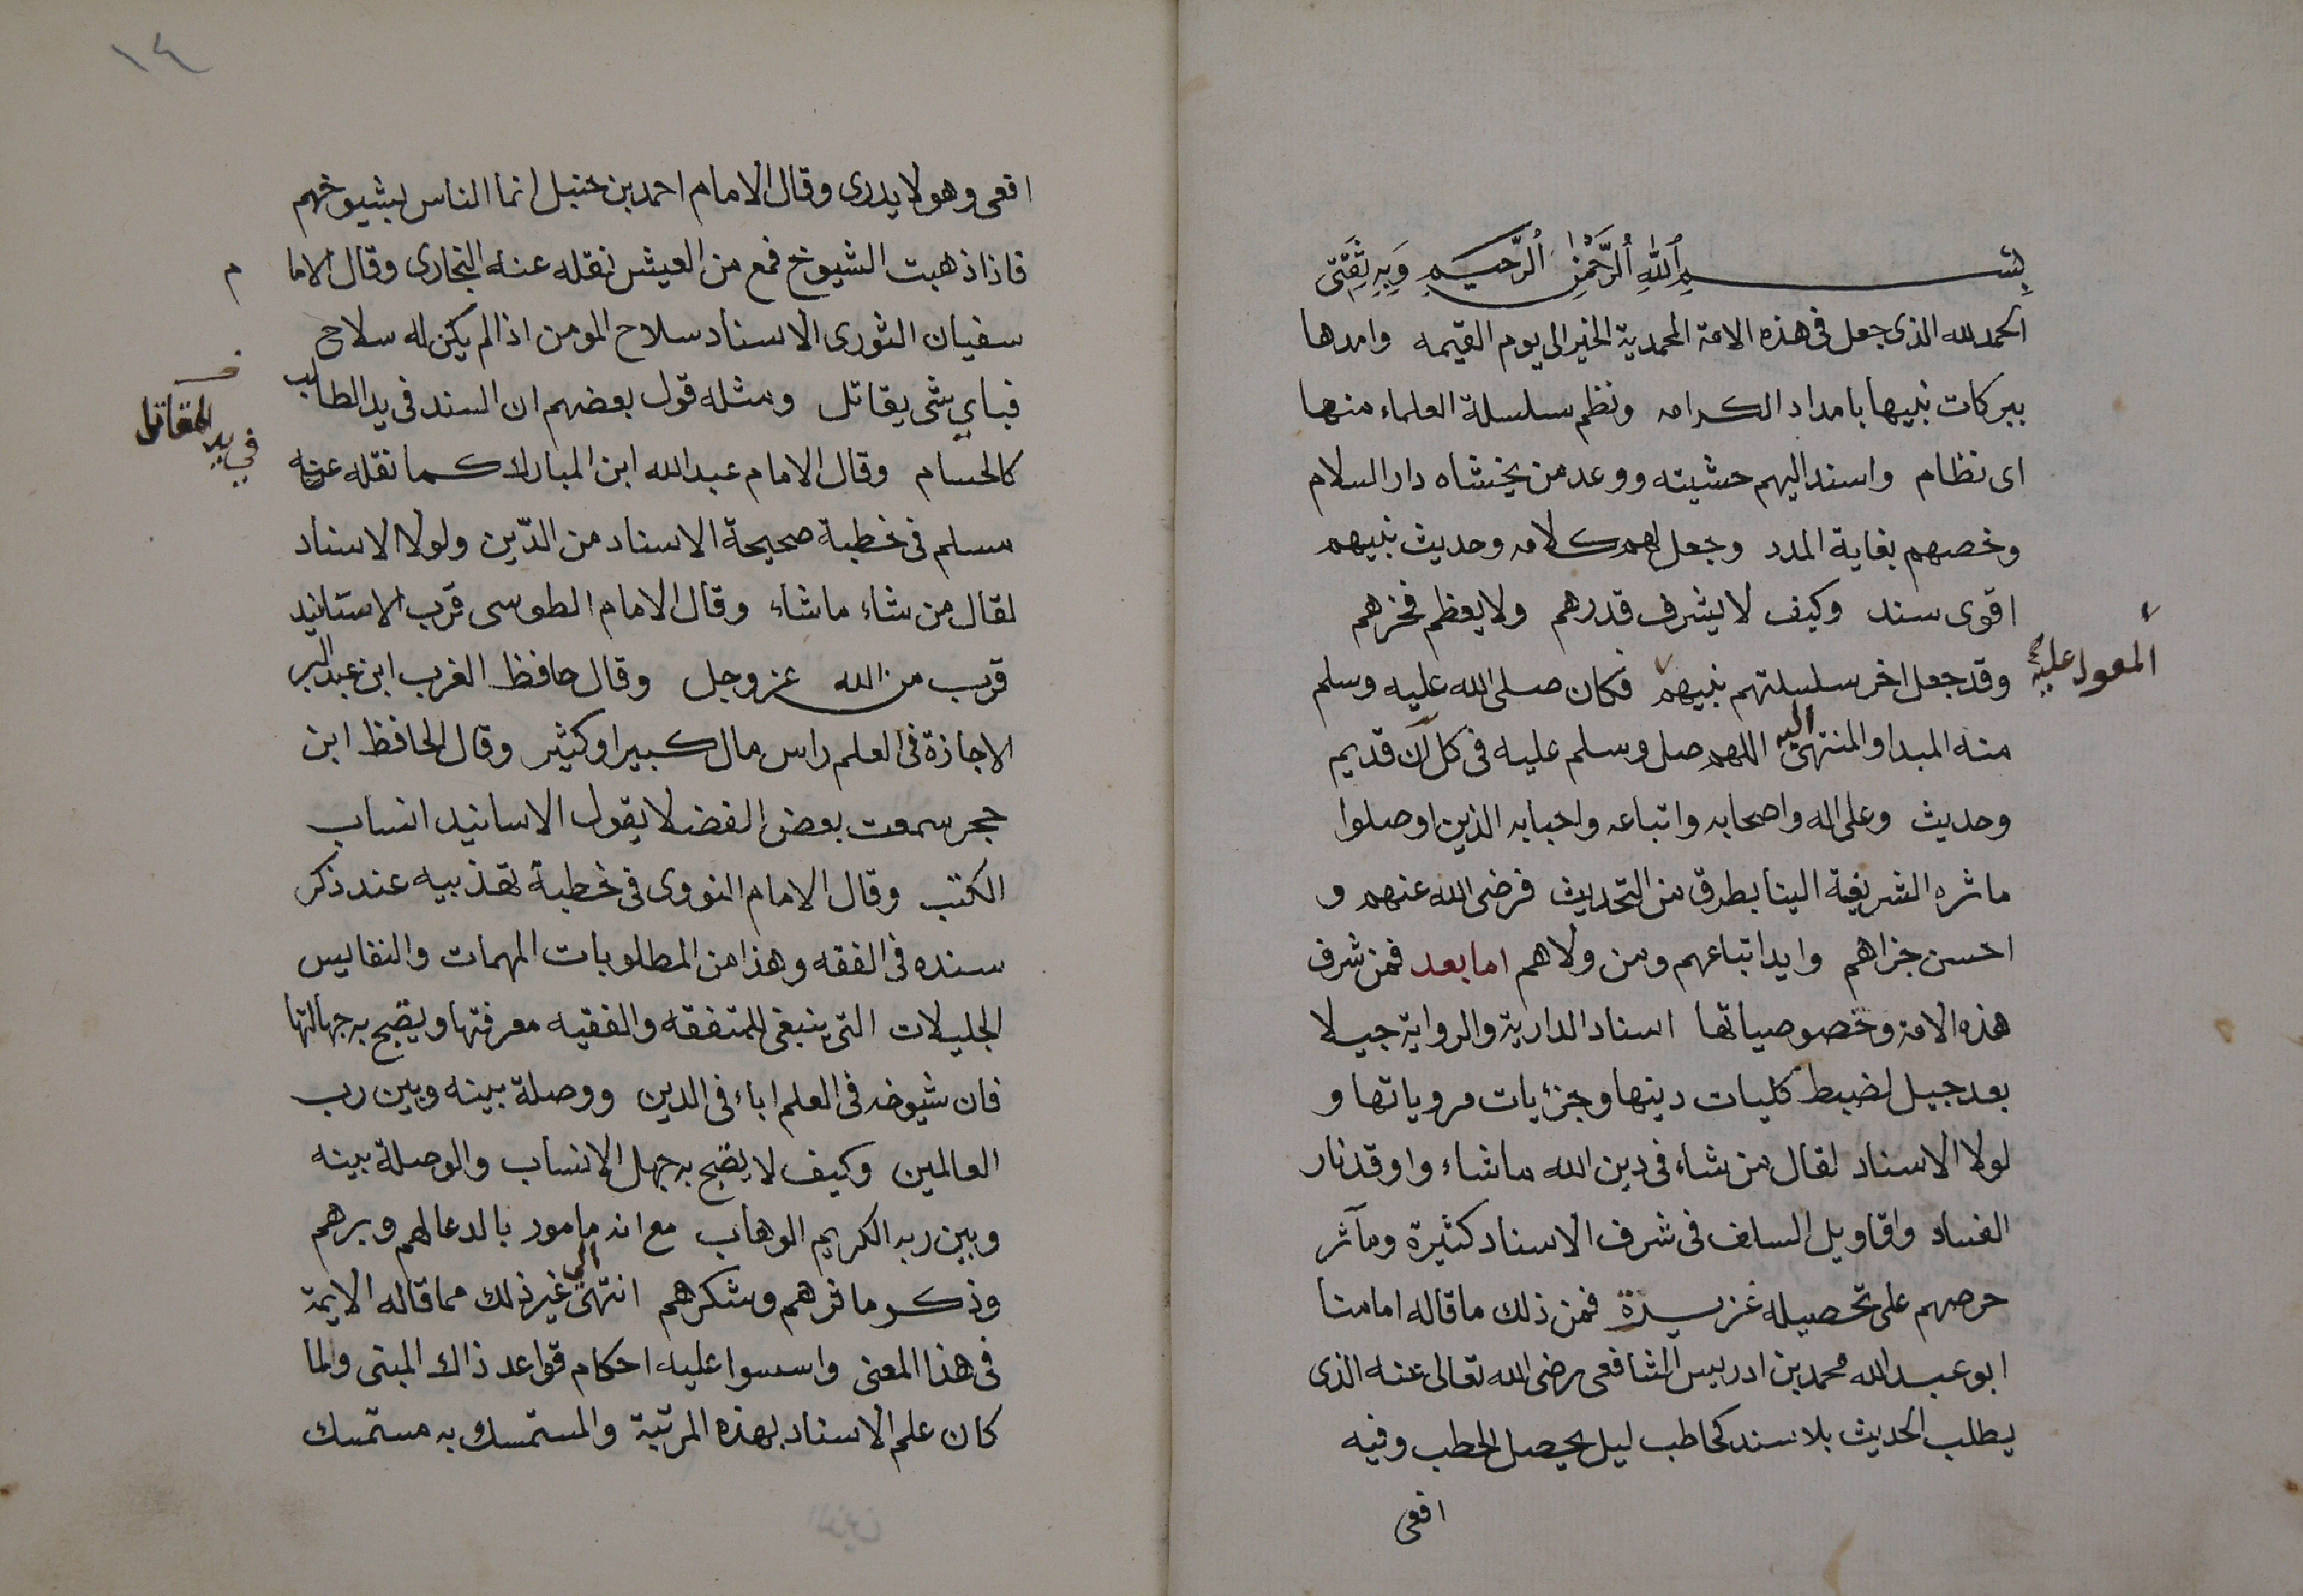 بِسْمِ ٱللهِ ٱلرَّحْمٰنِ ٱلرَّحِيمِ وَبِهِ ثِقَتِى
الحمد لله الذى جعل فى هذه الامة المحمدية الخير الى يوم القيمه وامدها
ببركات نبيها بامداد الكرامه ونظم سلسلة العلماء منها
اى نظام واسند اليهم خشيته ووعد من يخشاه دار السلام
وخصهم بغاية المدد وجعل لهم كلامه وحديث نبيهم
اقوى سند وكيف لا يشرف قدرهم ولا يعظم فخرهم
وقد جعل اخر سلسلتهم نبيهم فكان صلى الله عليه وسلم
المعول عليه
منه المبدا والمنتهى اليه اللهم صل وسلم عليه فى كل آن قديم
وحديث وعلى اله واصحابه واتباعه واحبابه الذين اوصلوا
ماثره الشريفة الينا بطرق من التحديث فرضى الله عنهم و
احسن جزاهم وايد اتباعهم ومن ولاهم اما بعد فمن شرف
هذه الامة وخصوصياتها اسناد الدارية والرواية جيلا
بعد جيل لضبط كليات دينها وجزئيات مروياتها و
لولا الاسناد لقال من شاء فى دين الله ماشاء واوقد نار
الفساد واقاويل السلف فى شرف الاسناد كثيرة ومآثر
حرصهم على تحصيله غزيرة فمن ذلك ما قاله امامنا
ابو عبد الله محمد بن ادريس الشافعى رضى الله تعالى عنه الذى
يطلب الحديث بلا سند كحاطب ليل يحصل الحطب وفيه
افعى
١٤
افعى وهو لا يدرى وقال الامام احمد بن حنبل انما الناس بشيوخهم
فاذا ذهبت الشيوخ فمع من العيش نقله عنه البخارى وقال الاما م
سفيان الثورى الاسناد سلاح المومن اذا لم يكن له سلاح
فباي شى يقاتل ومثله قول بعضهم ان السند فى يد الطالب
في يد المقاتل
كالحسام وقال الامام عبد الله ابن المبارك كما نقله عنه
مسلم فى خطبة صحيحة الاسناد من الدّين ولولا الاسناد
لقال من شاء ماشاء وقال الامام الطوسى قرب الاستانيد
قرب من الله عز وجل وقال حافظ الغرب ابن عبد البر
الاجازة فى العلم راس مال كبير او كثير وقال الحافظ ابن
حجر سمعت بعض الفضلا يقول الاسانيد انساب
الكتب وقال الامام النووى فى خطبة تهذبيه عند ذكر
سنده فى الفقه وهذا من المطلوبات المهمات والنفايس
الجليلات التى ينبغى للمتفقه والفقيه معرفتها ويقبح به جهالتها
فان شيوخه فى العلم اباء فى الدين ووصلة بينه وبين رب
العالمين وكيف لا يقبح به جهل الانساب والوصلة بينه
وبين ربه الكريم الوهاب مع انه مامور بالدعا لهم وبرهم
وذكر ماثرهم وشكرهم انتهى الى غير ذلك مما قاله الايمة
فى هذا المعنى واسسوا عليه احكام قواعد ذاك المبنى ولما
كان علم الاسناد بهذه المرتبة والمستمسك به مستمسك